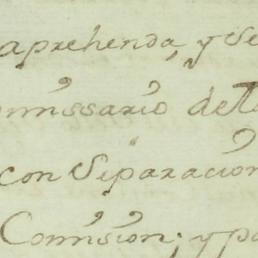 aprehenda, y se
omissario de la
con Separacion
Comision; y pa